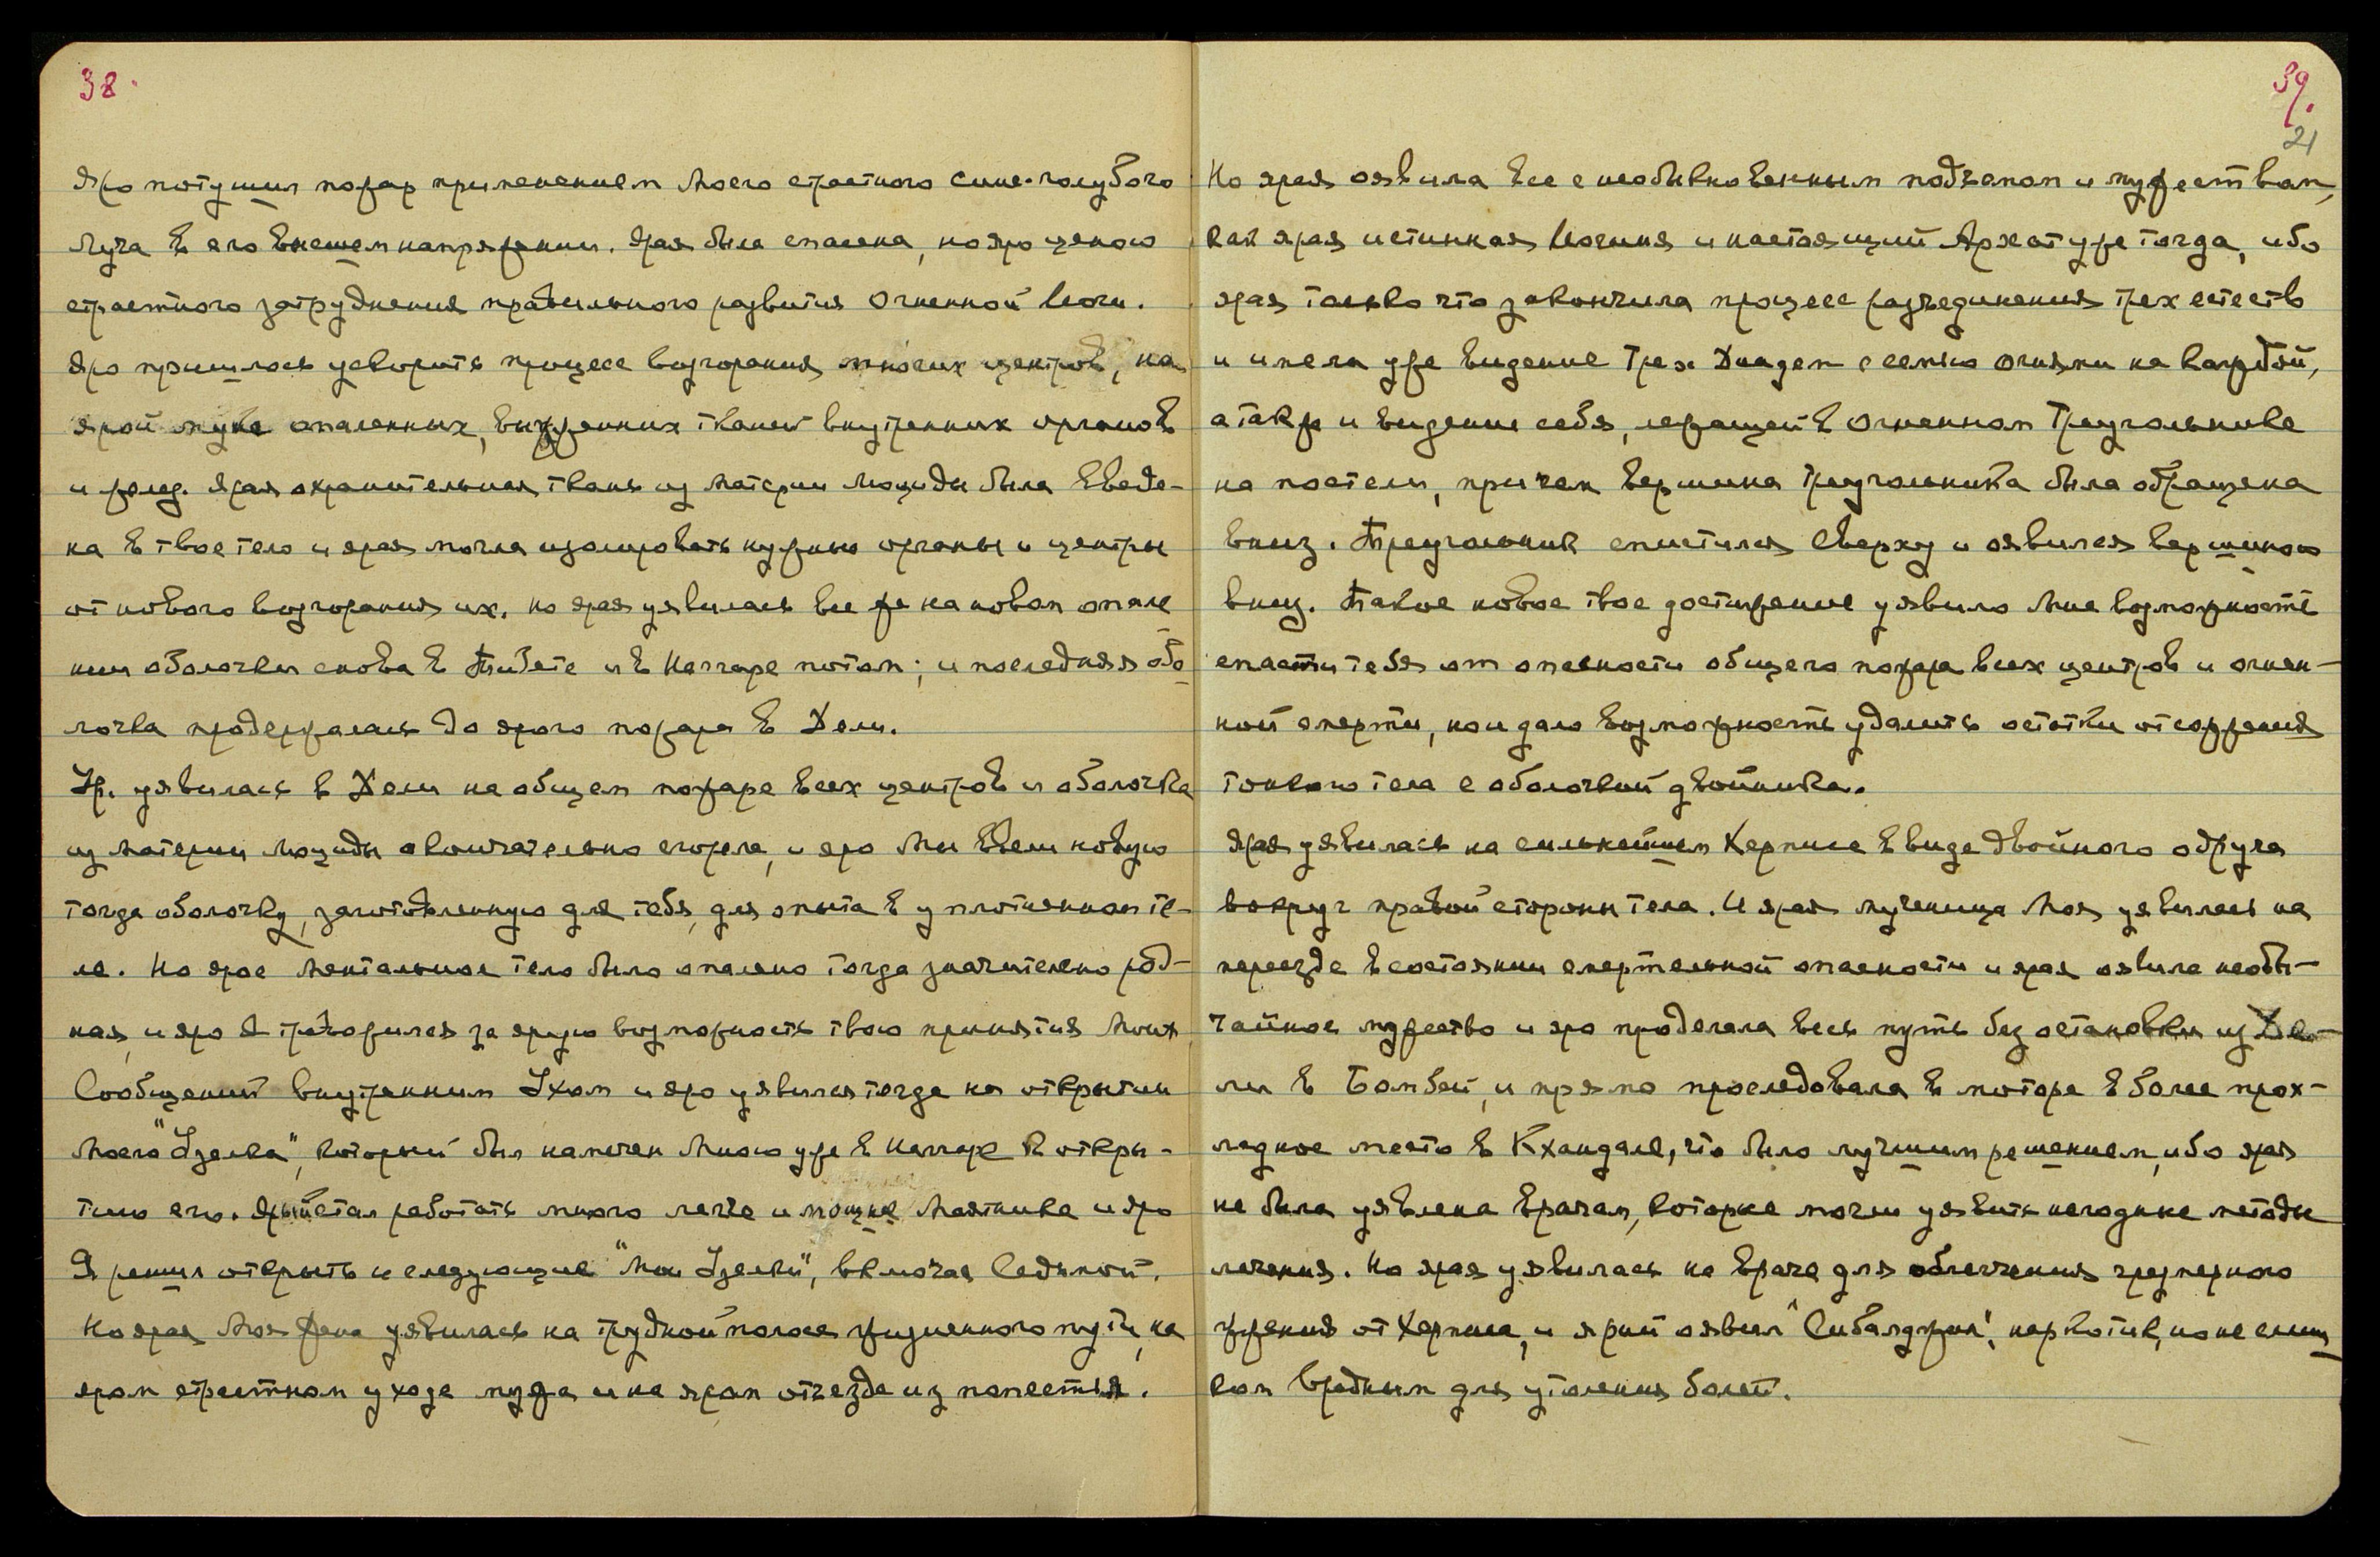 38.
Яро потушил пожар применением Моего страстного сине-голубого
Луча в его высшем напряжении. Ярая была спасена, но яро ценою
страстного затруднения правильного развития Огненной Йоги.
Яро пришлось ускорить процесс возгорания многих центров, на
ярой муке опаленных, внутренних тканей внутренних органов
и желез. Ярая охранительная ткань из Материи Люциды была введе-
на в твое тело и ярая могла изолировать нужные органы и центры
от нового возгорания их. Но ярая уявилась все же на новом опале
нии оболочки снова в Тибете и в Наггаре потом; и последняя обо
лочка продержалась до ярого пожара в Дели.
Ур. уявилась в Дели на общем пожаре всех центров и оболочка
из Материи Люциды окончательно сгорела, и яро Мы ввели новую
тогда оболочку, заготовленную для тебя, для опыта в уплотненном те-
ле. Но ярое ментальное тело было опалено тогда значительно, род-
ная, и яро Я тревожился за ярую возможность твою принятия Моих
Сообщений внутренним Ухом и яро уявился тогда на открытии
Моего "Узелка", который был намечен Мною уже в Наггаре к откры-
тию его. Ярый стал работать много легче и мощнее Маятника и яро
Я решил открыть и следующие "Мои Узелки", включая Седьмой.
Но ярая Моя Жена уявилась на трудной полосе жизненного пути, на
яром страстном уходе мужа и на яром отъезде из поместья.
39.
21
Но ярая оявила все с необыкновенным подъемом и мужеством,
как ярая истинная Йогиня и настоящий Архат уже тогда, ибо
ярая только что закончила процесс разъединения трех естеств
и имела уже видение Трех Диадем с семью огнями на каждой,
а также и видение себя, лежащей в Огненном Треугольнике
на постели, причем вершина треугольника была обращена
вниз. Треугольник спустился сверху и оявился вершиною
вниз. Такое новое твое достижение уявило Мне возможность
спасти тебя от опасности общего пожара всех центров и огнен-
ной смерти, но и дало возможность удалить остатки отторжения
тонкого тела с оболочкой двойника.
Ярая уявилась на сильнейшем Херписе в виде двойного обруча
вокруг правой стороны тела. И ярая мученица Моя уявилась на
переезде в состоянии смертельной опасности и ярая оявила необы-
чайное мужество и яро проделала весь путь без остановки из Де-
ли в Бомбей, и прямо проследовала в моторе в более прох-
ладное место в Кхандале, что было лучшим решением, ибо ярая
не была уявлена врачам, которые могли уявить негодные методы
лечения. Но ярая уявилась на враче для облегчения чрезмерного
жжения от Херписа, и ярый оявил "Сибалджин", наркотик, но не слиш
ком вредным для утоления болей.